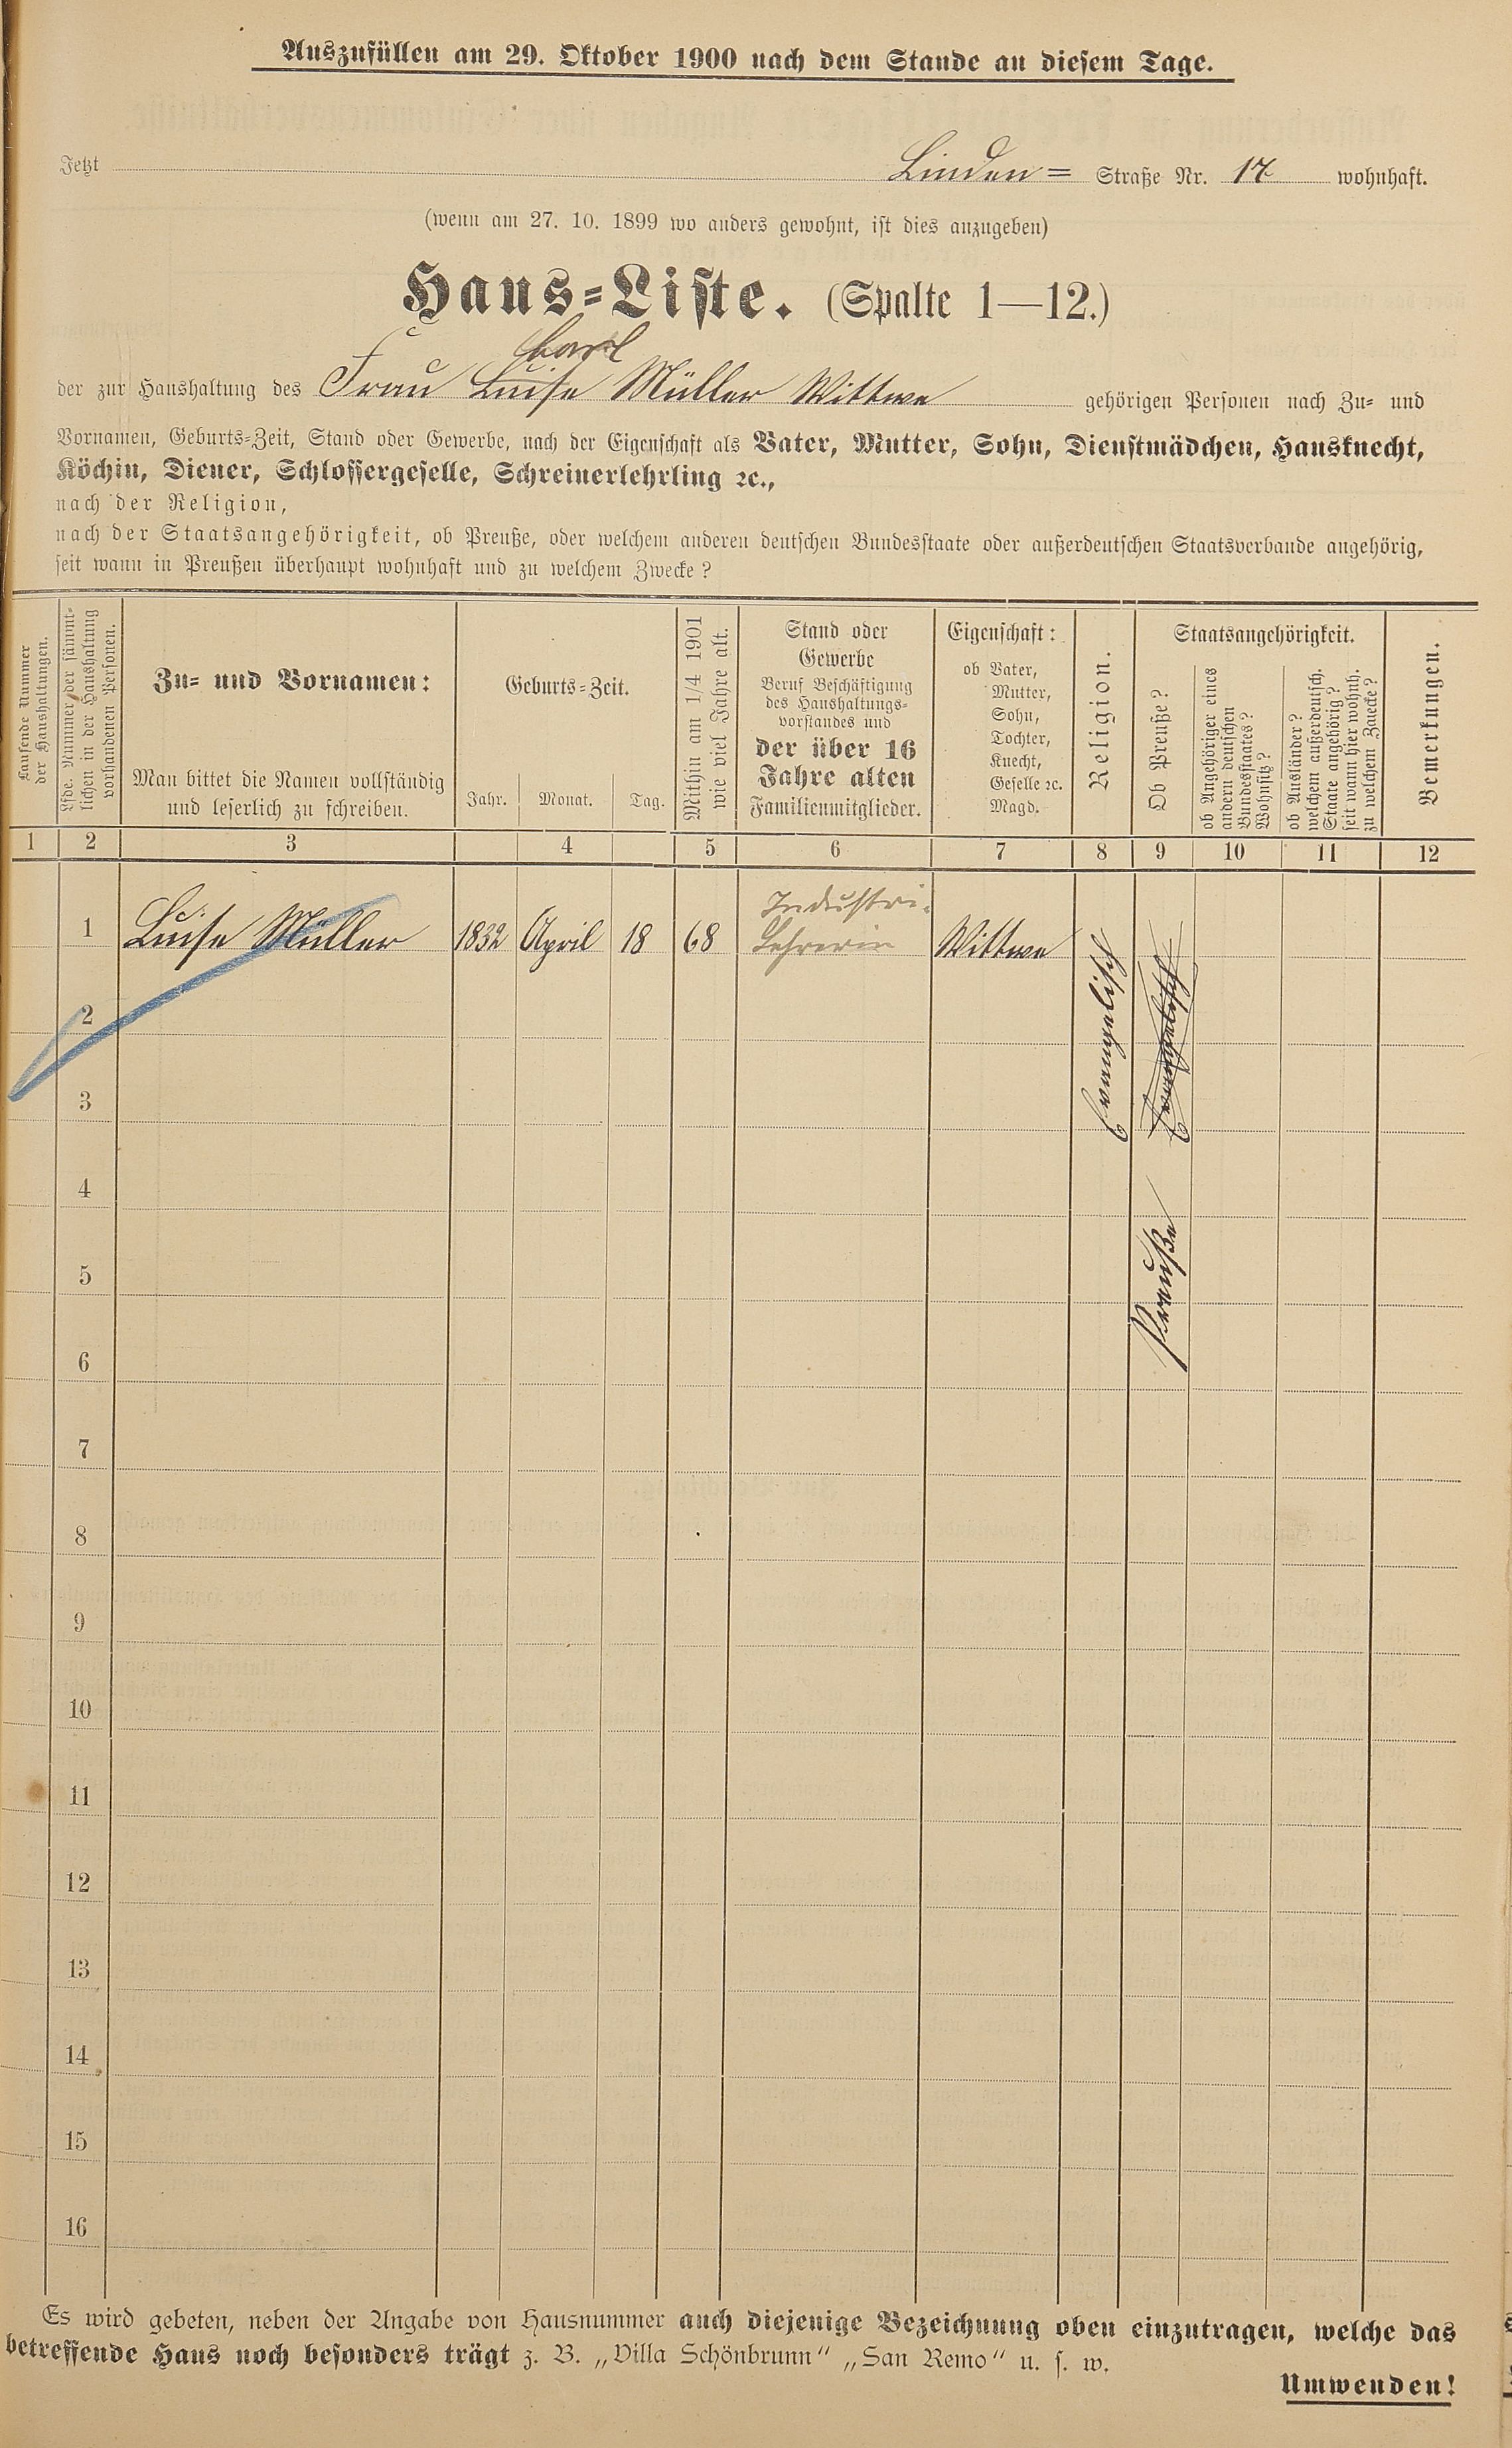 Auszufüllen am 29. Oktober 1900 nach dem Stande an diesem Tage.
Jetzt Linden= Straße Nr. 17 wohnhaft.
(wenn am 27. 10. 1899 wo anders gewohnt, ist dies anzugeben)
Haus=Liste. (Spalte 1—12.)
Carl
der zur Haushaltung des Frau Luise Müller Wittwe gehörigen Personen nach Zu= und
Vornamen, Geburts=Zeit, Stand oder Gewerbe, nach der Eigenschaft als Vater, Mutter, Sohn, Dienstmädchen, Hausknecht,
Köchin, Diener, Schlossergeselle, Schreinerlehrling ꝛc.,
nach der Religion,
nach der Staatsangehörigkeit, ob Preuße, oder welchem anderen deutschen Bundesstaate oder außerdeutschen Staatsverbande angehörig,
seit wann in Preußen überhaupt wohnhaft und zu welchem Zwecke?
Laufende Nummer
der Haushaltungen.
Lfde. Nummer der sämmt=
lichen in der Haushaltung
vorhandenen Personen.
Zu= und Vornamen:
Man bittet die Namen vollständig
und leserlich zu schreiben.
Geburts=Zeit.
Jahr. Monat. Tag.
Mithin am 1/4 1901
wie viel Jahre alt.
Stand oder
Gewerbe
Beruf Beschäftigung
des Haushaltungs=
vorstandes und
der über 16
Jahre alten
Familienmitglieder.
Eigenschaft:
ob Vater,
Mutter,
Sohn,
Tochter,
Knecht,
Geselle ꝛc.
Magd.
Religion.
Staatsangehörigkeit.
Ob Preuße?
ob Angehöriger eines
andern deutschen
Bundesstaates?
Wohnsitz?
ob Ausländer?
welchem außerdeutsch.
Staate angehörig?
seit wann hier wohnh.
zu welchem Zwecke?
Bemerkungen.
1 2 3 4 5 6 7 8 9 10 11 12
Industri-
1 Luise Müller 1832 April 18 68 Lehrerin Wittwe evangelisch evangelisch
2
3
4
Preuße
5
6
7
8
9
10
11
12
13
14
15
16
Es wird gebeten, neben der Angabe von Hausnummer auch diejenige Bezeichnung oben einzutragen, welche das
betreffende Haus noch besonders trägt z. B. „Villa Schönbrunn" „San Remo" u. s. w.
Umwenden!